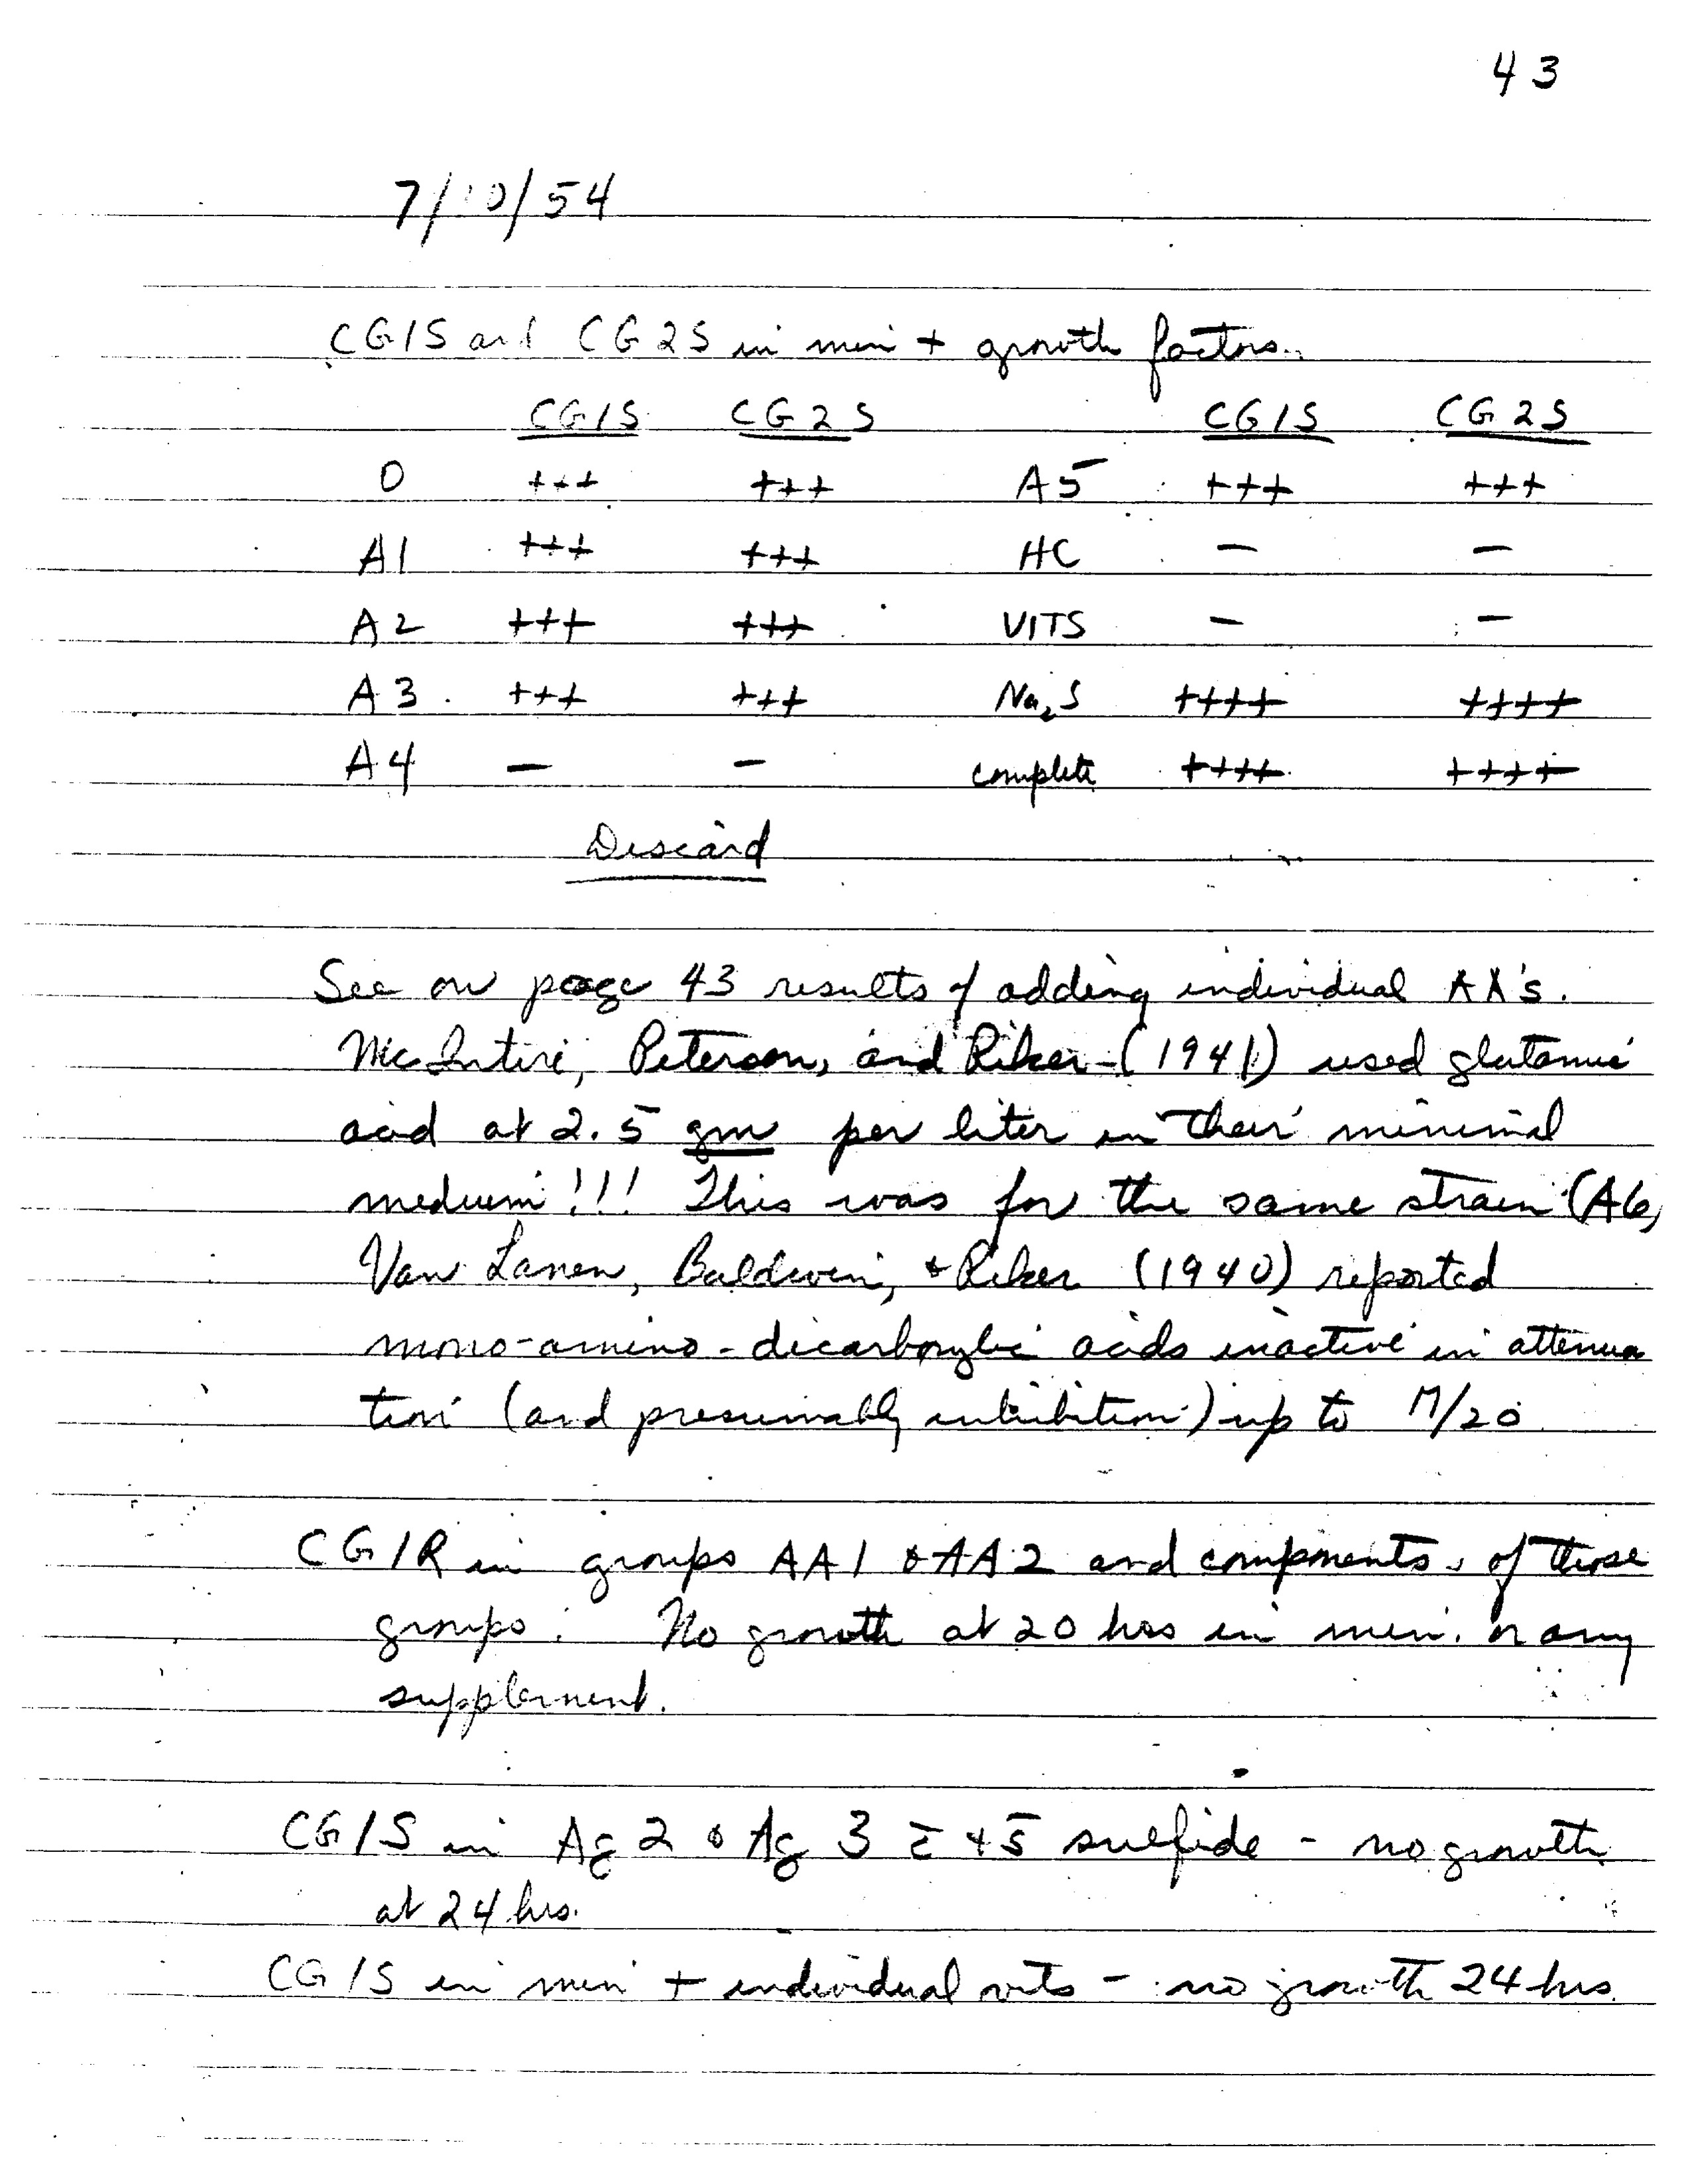 43
7/10/54
CG1S and CG2S in min + growth factors.
CG1S CG2S CG1S CG2S
0 +++ +++ A5 +++ +++
A1 +++ +++ HC — —
A2 +++ +++ VITS — —
A3 +++ +++ Na2S ++++ ++++
A4 — — complete ++++ ++++
Discard
See on page 43 results of adding individual AA's.
McIntire, Peterson, and Riker (1941) used glutamic
acid at 2.5 gm per liter in their minimal
medium!!! This was for the same strain (A6)
Van Lanen, Baldwin, & Riker (1940) reported
mono-amino-dicarboxylic acids inactive in attenua
tion (and presumably inhibition) up to M/20
CG1R in groups AA1 & AA2 and components of those
groups. No growth at 20 hrs in min. or any
supplement.
CG1S in Ag 2 & Ag 3 c̄ + s̄ sulfide - no growth
at 24 hrs.
CG1S in min + individual vits - no growth 24 hrs.